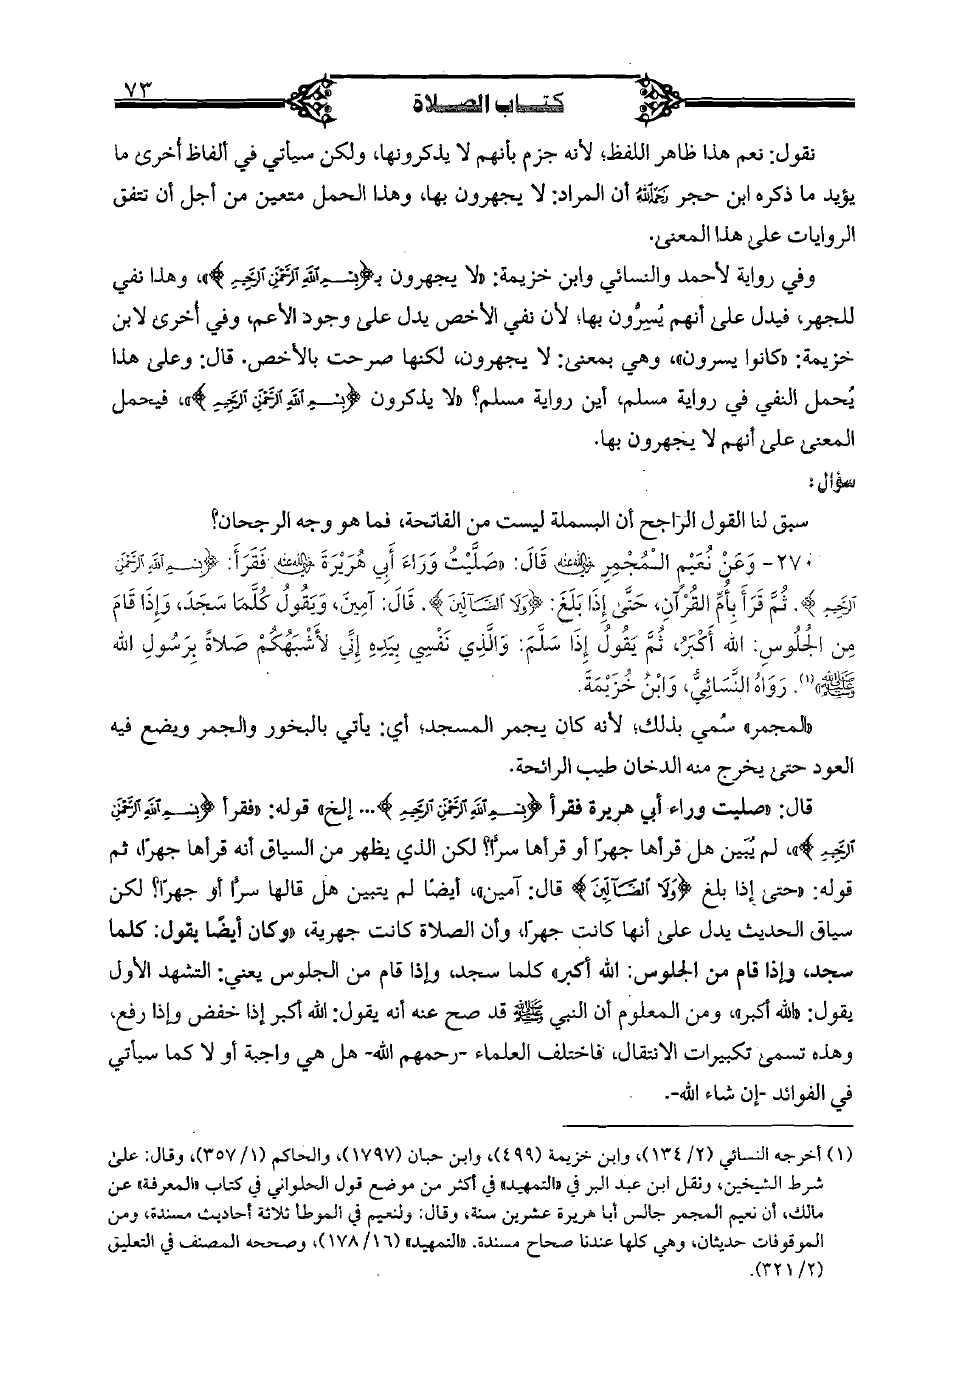 ٧٣
كتاب الصلاة
نقول: نعم هذا ظاهر اللفظ؛ لأنه جزم بأنهم لا يذكرونها، ولكن سيأتي في ألفاظ أخرى ما
يؤيد ما ذكره ابن حجر رحمه الله أن المراد: لا يجهرون بها، وهذا الحمل متعين من أجل أن تتفق
الروايات على هذا المعنى.
وفي رواية لأحمد والنسائي وابن خزيمة: «لا يجهرون بـ﴿بِسْمِ اللَّهِ الرَّحْمَنِ الرَّحِيمِ﴾»، وهذا نفي
للجهر، فيدل على أنهم يُسِرُّون بها؛ لأن نفي الأخص يدل على وجود الأعم، وفي أخرى لابن
خزيمة: «كانوا يسرون»، وهي بمعنى: لا يجهرون، لكنها صرحت بالأخص. قال: وعلى هذا
يُحمل النفي في رواية مسلم، أين رواية مسلم؟ «لا يذكرون ﴿بِسْمِ اللَّهِ الرَّحْمَنِ الرَّحِيمِ﴾»، فيحمل
المعنى على أنهم لا يجهرون بها.
سؤال:
سبق لنا القول الراجح أن البسملة ليست من الفاتحة، فما هو وجه الرجحان؟
٢٧٠- وَعَنْ نُعَيْمٍ الْمُجْمِرِ رضي الله عنه قَالَ: «صَلَّيْتُ وَرَاءَ أَبِي هُرَيْرَةَ رضي الله عنه فَقَرَأَ: ﴿بِسْمِ اللَّهِ الرَّحْمَنِ
الرَّحِيمِ﴾. ثُمَّ قَرَأَ بِأُمِّ الْقُرْآنِ، حَتَّى إِذَا بَلَغَ: ﴿وَلَا الضَّآلِّينَ﴾. قَالَ: آمِينَ، وَيَقُولُ كُلَّمَا سَجَدَ، وَإِذَا قَامَ
مِنَ الْجُلُوسِ: الله أَكْبَرُ، ثُمَّ يَقُولُ إِذَا سَلَّمَ: وَالَّذِي نَفْسِي بِيَدِهِ إِنِّي لَأَشْبَهُكُمْ صَلَاةً بِرَسُولِ الله
ﷺ»(١). رَوَاهُ النَّسَائِيُّ، وَابْنُ خُزَيْمَةَ.
«المجمر» سُمي بذلك؛ لأنه كان يجمر المسجد؛ أي: يأتي بالبخور والجمر ويضع فيه
العود حتى يخرج منه الدخان طيب الرائحة.
قال: «صليت وراء أبي هريرة فقرأ ﴿بِسْمِ اللَّهِ الرَّحْمَنِ الرَّحِيمِ﴾... إلخ» قوله: «فقرأ ﴿بِسْمِ اللَّهِ الرَّحْمَنِ
الرَّحِيمِ﴾»، لم يُبَين هل قرأها جهرًا أو قرأها سرًّا؟ لكن الذي يظهر من السياق أنه قرأها جهرًا، ثم
قوله: «حتى إذا بلغ ﴿وَلَا الضَّآلِّينَ﴾ قال: آمين»، أيضًا لم يتبين هل قالها سرًّا أو جهرًا؟ لكن
سياق الحديث يدل على أنها كانت جهرًا، وأن الصلاة كانت جهرية، «وكان أيضًا يقول: كلما
سجد، وإذا قام من الجلوس: الله أكبر» كلما سجد، وإذا قام من الجلوس يعني: التشهد الأول
يقول: «الله أكبر»، ومن المعلوم أن النبي ﷺ قد صح عنه أنه يقول: الله أكبر إذا خفض وإذا رفع،
وهذه تسمى تكبيرات الانتقال، فاختلف العلماء -رحمهم الله- هل هي واجبة أو لا كما سيأتي
في الفوائد -إن شاء الله-.
(١) أخرجه النسائي (٢/ ١٣٤)، وابن خزيمة (٤٩٩)، وابن حبان (١٧٩٧)، والحاكم (١/ ٣٥٧)، وقال: على
شرط الشيخين، ونقل ابن عبد البر في «التمهيد» في أكثر من موضع قول الحلواني في كتاب «المعرفة» عن
مالك، أن نعيم المجمر جالس أبا هريرة عشرين سنة، وقال: ولنعيم في الموطأ ثلاثة أحاديث مسندة، ومن
الموقوفات حديثان، وهي كلها عندنا صحاح مسندة. «التمهيد» (١٦/ ١٧٨)، وصححه المصنف في التعليق
(٢/ ٣٢١).